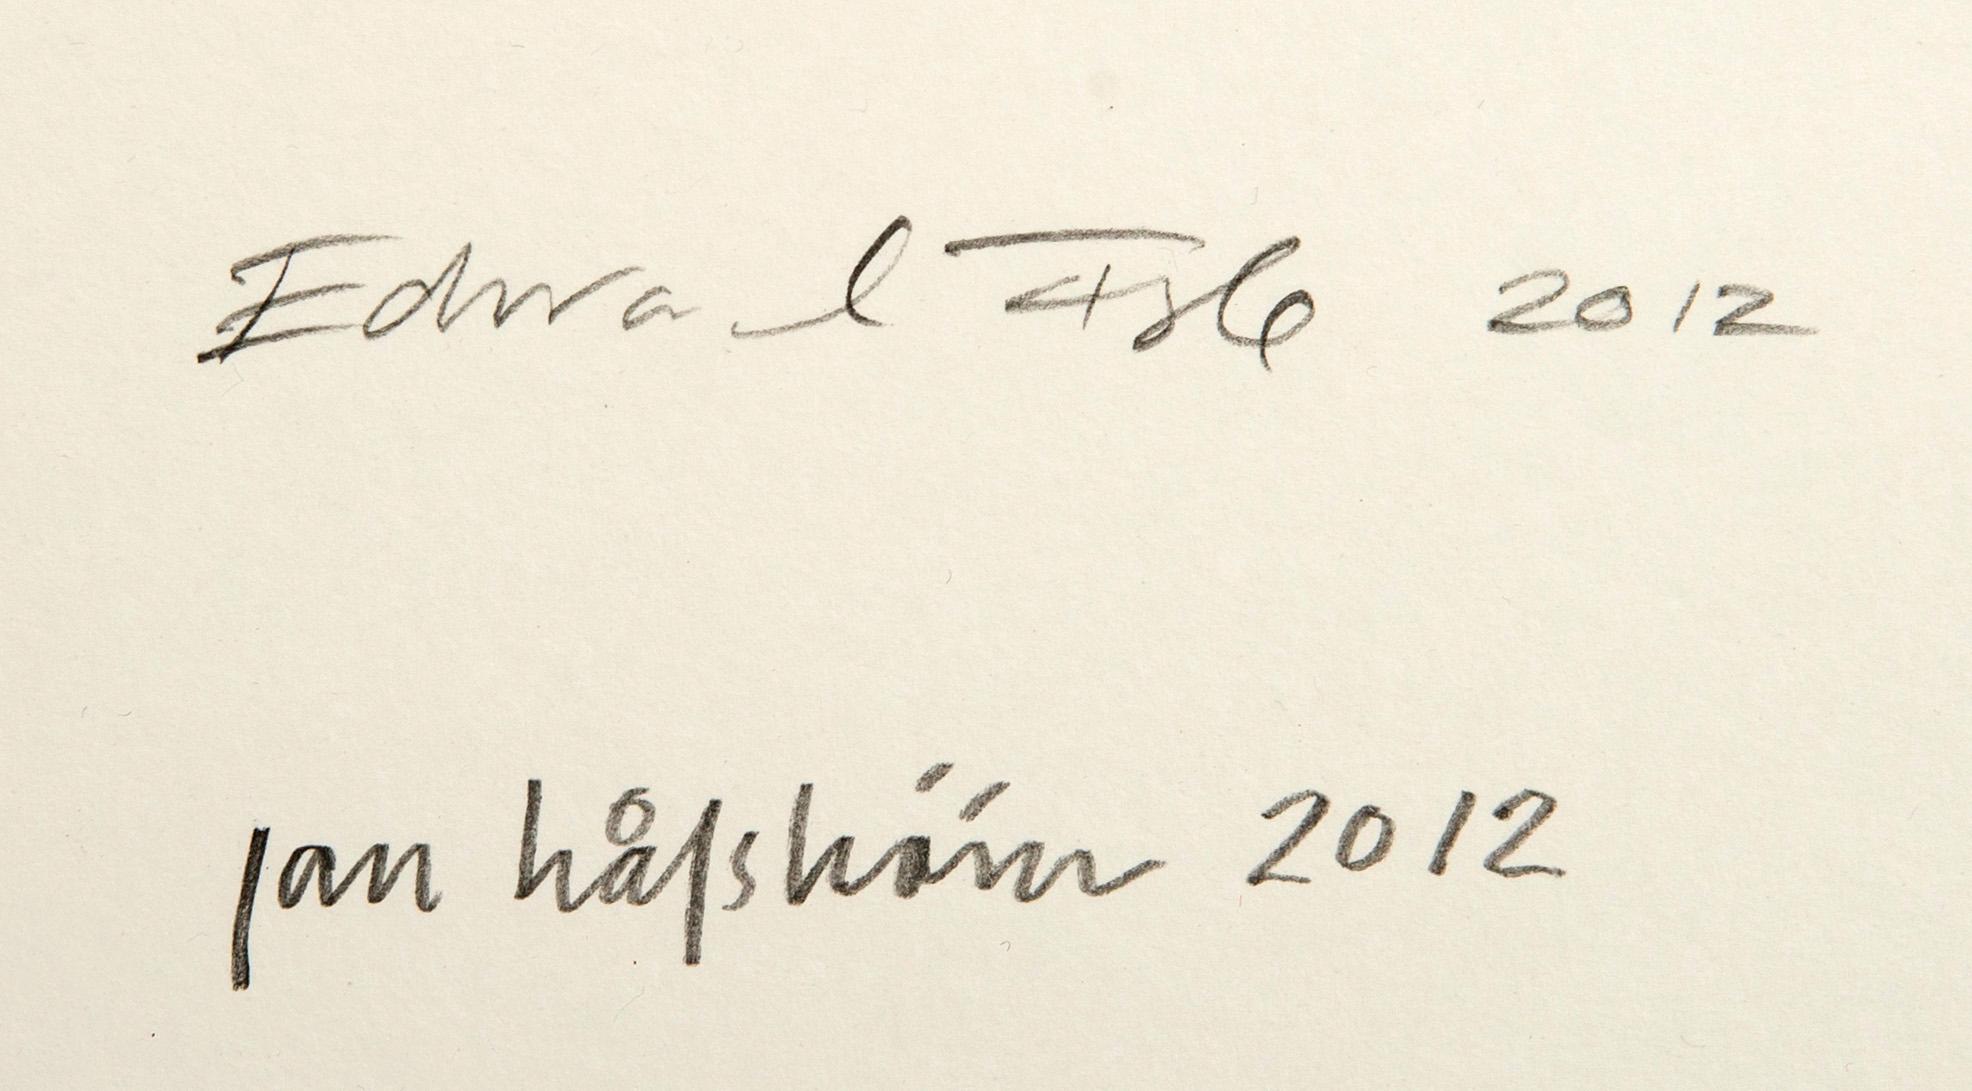 Edward 2012
jan håfström 2012